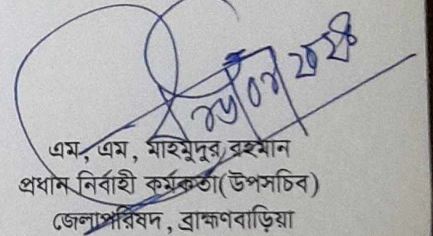 এম, এম, মাহমুদুর রহমান
প্রধান নির্বাহী কর্মকর্তা(উপসচিব)
জেলাপরিষদ, ব্রাহ্মণবাড়িয়া